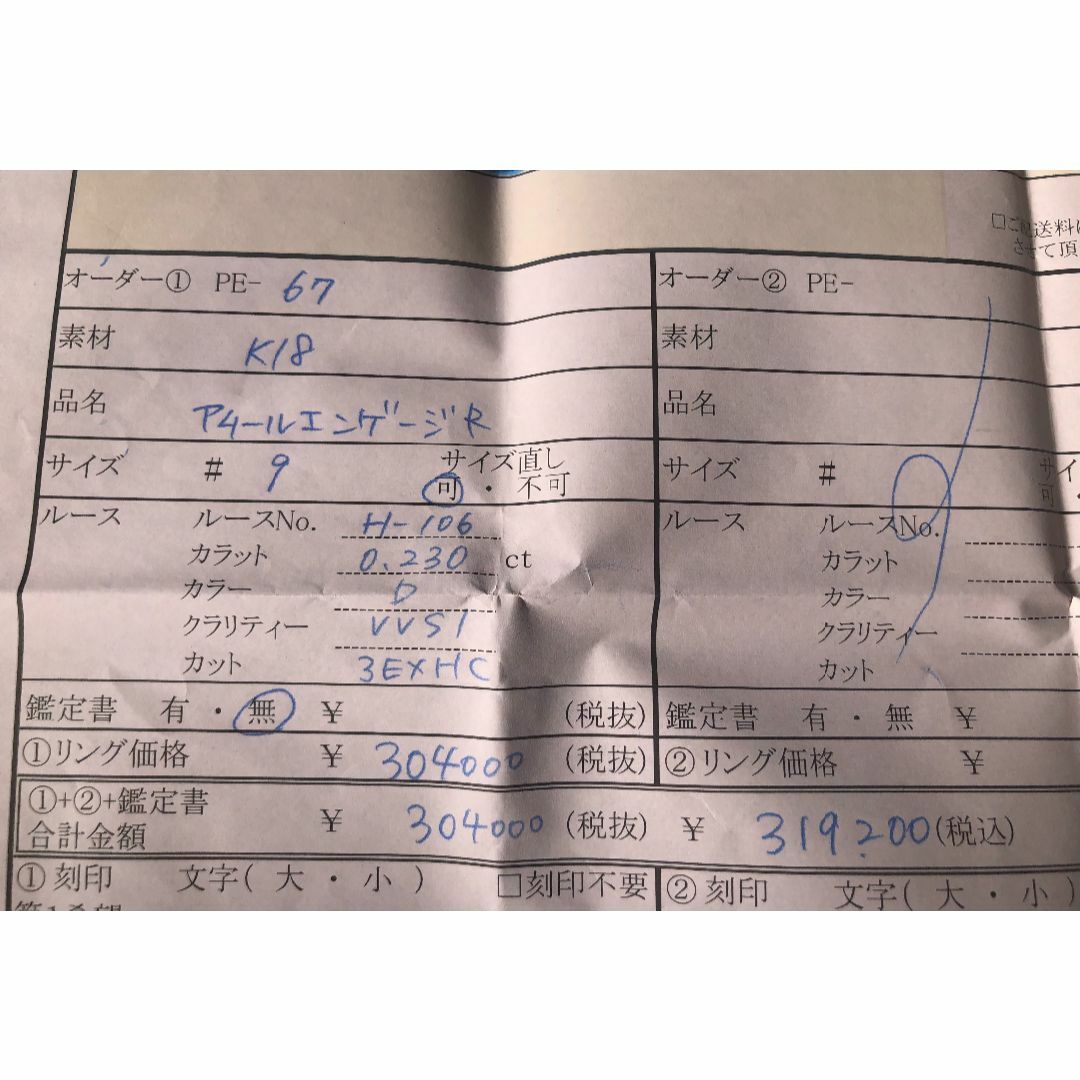 □ご配送料は
させて頂
オーダー① PE- 67
オーダー② PE-
素材 K18
素材
品名 アムールエンゲージR
品名
サイズ # 9 サイズ直し 可 ・ 不可
サイズ # サイ 可 ・
ルース ルースNo. H-106
カラット 0.230 ct
カラー D
クラリティー VVS1
カット 3EXHC
ルース ルースNo.
カラット
カラー
クラリティー
カット
鑑定書 有 ・ 無 ¥ (税抜)
鑑定書 有 ・ 無 ¥
①リング価格 ¥ 304000 (税抜)
②リング価格 ¥
①+②+鑑定書
合計金額 ¥ 304000 (税抜) ¥ 319.200(税込)
①刻印 文字( 大 ・ 小 ) □刻印不要
②刻印 文字( 大 ・ 小 )